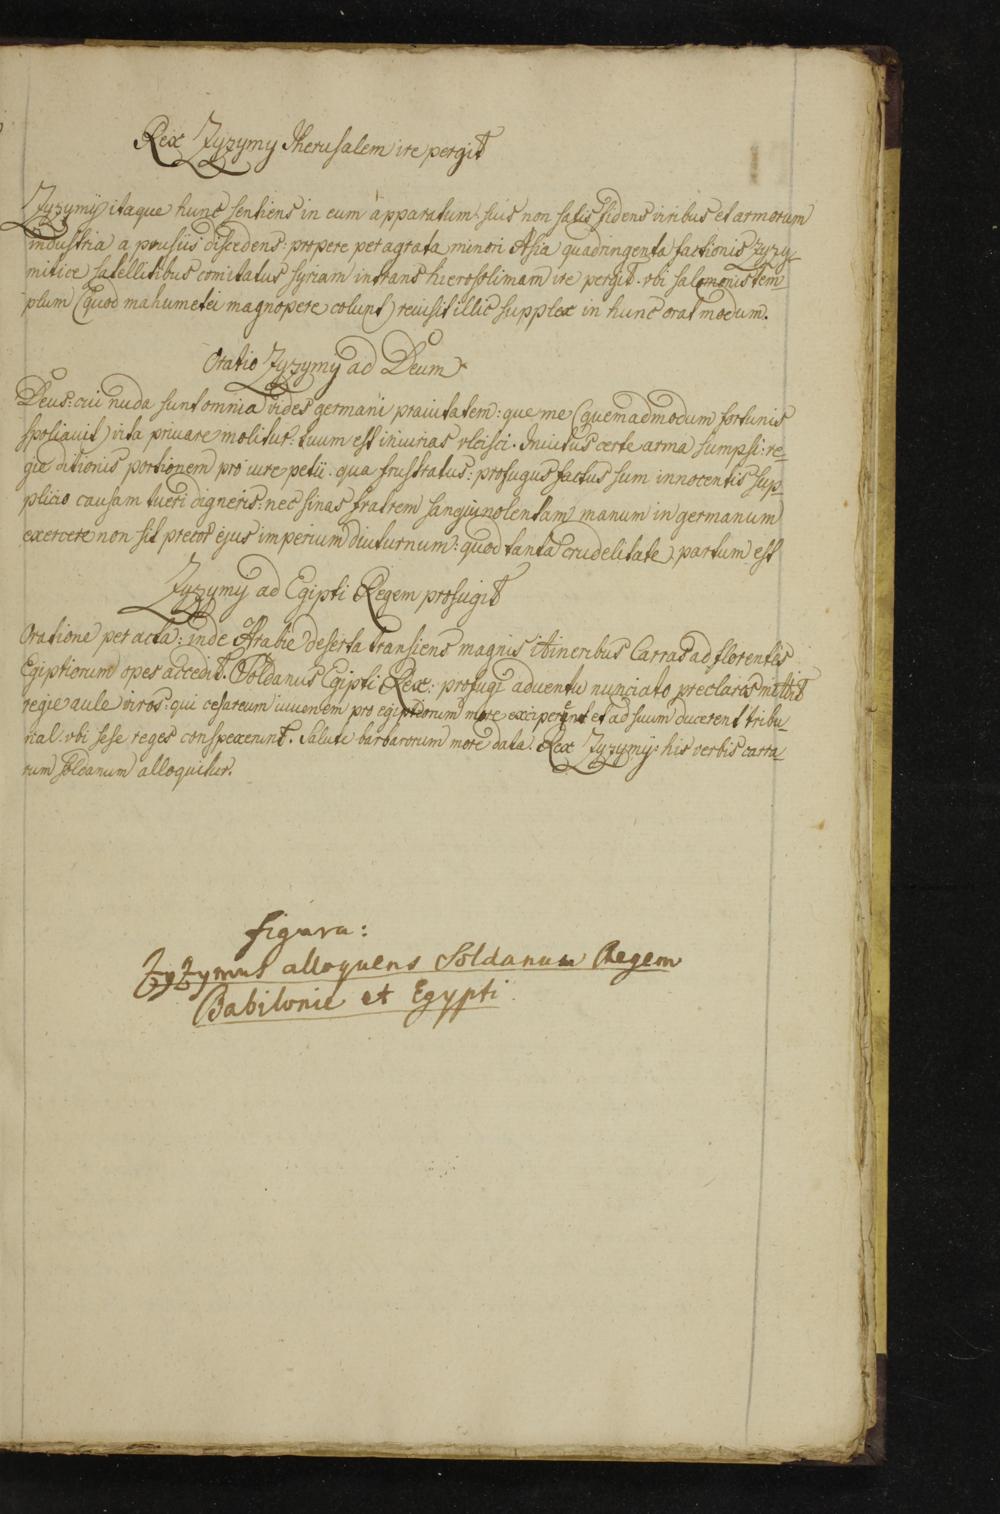 Rex Zyzymy Jherusalem ire pergit
Zyzymy itaque hunc sentiens in eum apparatum: suis non satis fidens viribus et armorum
industria a prusiis discedens: propere peragrata minori Asia quadringenta factionis zyzy-
mitice satellitibus comitatus syriam intrans hierosolimam ire pergit. vbi salomonis tem-
plum (quod mahumetei magnopere colunt) reuisit illic supplex in hunc orat modum.
Oratio Zyzymy ad Deum
Deus: cui nuda sunt omnia vides germani prauitatem: que me (quemadmodum fortunis
spoliauit) vita priuare molitur: tuum est iniurias vlcisci. Inuitus certe arma sumpsi: re-
gie ditionis portionem pro iure petii. qua frustratus: profugus factus sum innocentis sup-
plicio causam tueri digneris: nec sinas fratrem sanguinolentam manum in germanum
exercere non sit precor ejus imperium diuturnum: quod tanta crudelitate partum est
Zyzymy ad Egipti Regem profugit
Oratione per acta: inde Arabie deserta transiens magnis itineribus Carras ad florentes
Egiptiorum opes accedit. Soldanus Egipti Rex: profugi aduentu nunciato preclaros mittit
regie aule viros: qui cesareum iuuenem pro egiptiorum more exciperent et ad suum ducerent tribu-
nal. vbi sese reges conspexerunt. Salute barbarorum more data. Rex Zyzymy: his verbis carra-
rum soldanum alloquitur.
figura:
Zyzymus alloquens Soldanum Regem
Babilonie et Egypti